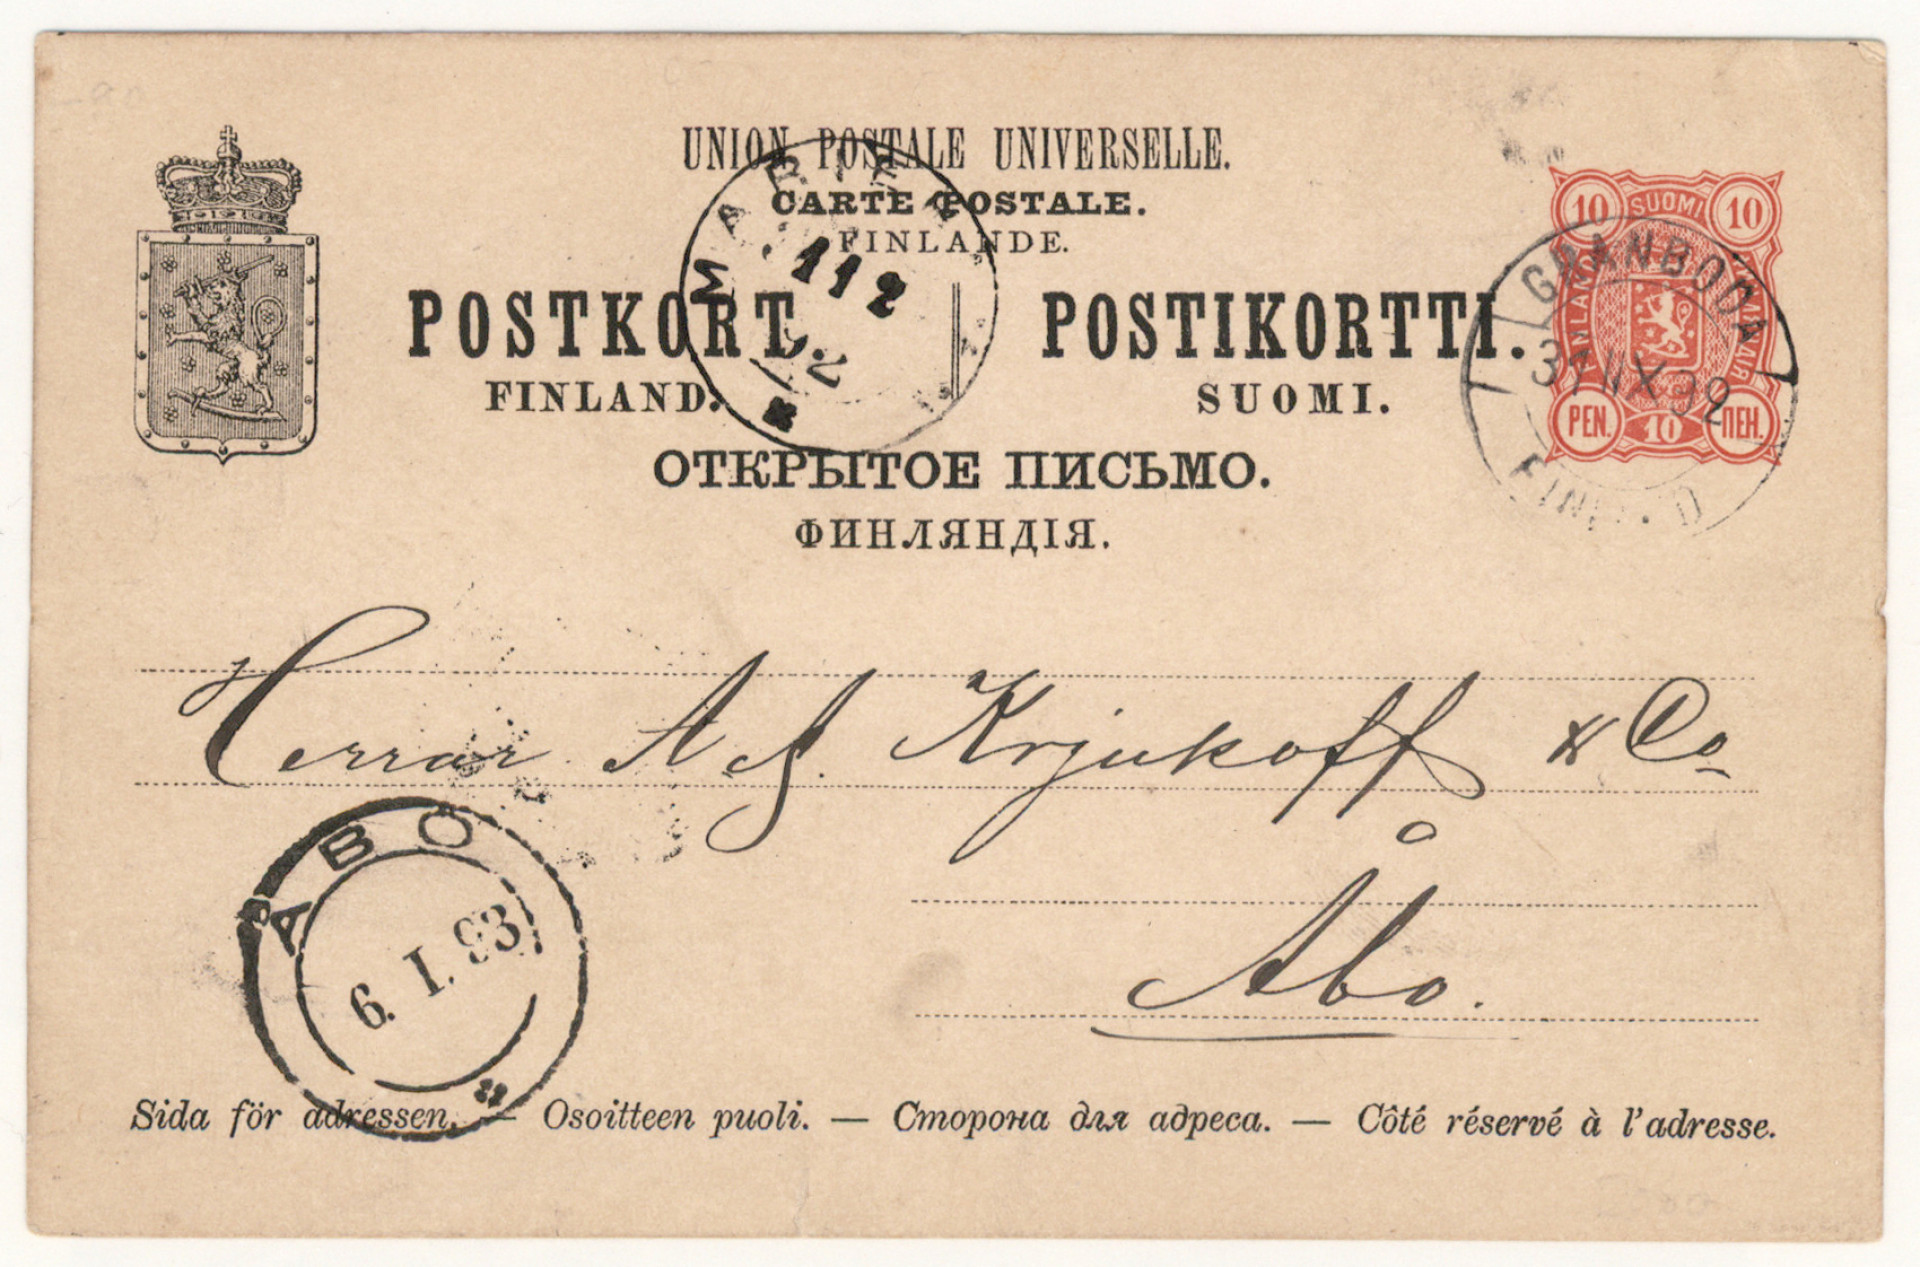 UNION POSTALE UNIVERSELLE.
CARTE POSTALE.
FINLANDE.
POSTKORT. POSTIKORTTI.
FINLAND. SUOMI.
ОТКРЫТОЕ ПИСЬМО.
ФИНЛЯНДІЯ.
10 SUOMI 10
FINLAND
PEN. 10 ПЕН.
GRANBODA
112
Herrar A A. Krjukoff & Co
Åbo.
ÅBO
6. I. 93
Sida för adressen. — Osoitteen puoli. — Сторона для адреса. — Côté réservé à l'adresse.